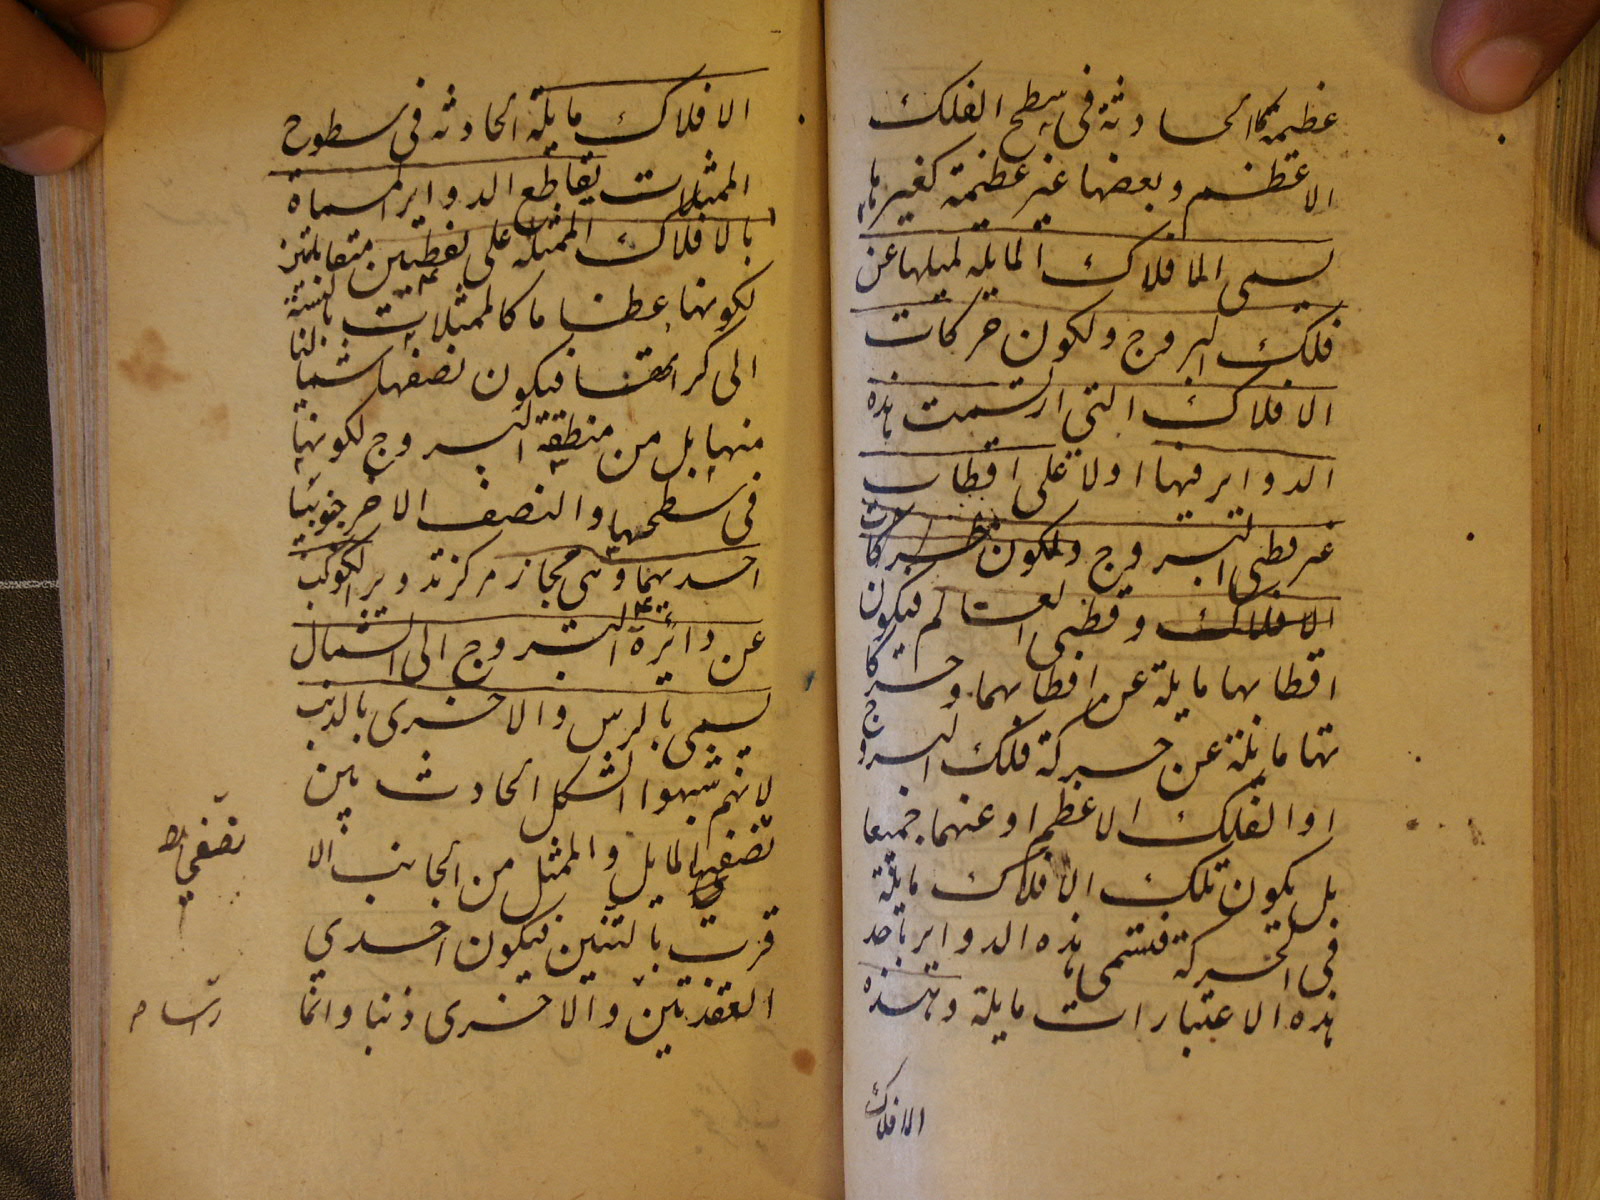 عظيمة كالحادثة فى سطح الفلك
الاعظم وبعضها غير عظيمة كغيرها
يسمى الافلاك المايلة لميلها عن
فلك البروج ولكون حركات
الافلاك التى ارتسمت هذه
الدواير فيها اولا على اقطاب
غير قطبى البروج ولكون حركات
الافلاك وقطبى العالم فيكون
اقطابها مايلة عن اقطابهما وحركا
تها مايلة عن حركة فلك البروج
او الفلك الاعظم او عنهما جميعا
بل يكون تلك الافلاك مايلة
فى الحركة فتسمى هذه الدواير باحد
هذه الاعتبارات مايلة وهذه
الافلاك
الافلاك مايلة الحادثة فى سطوح
الممثلات تقاطع الدواير المسماة
بالافلاك الممثلة على نقطتين متقابلتين
لكونها عظاما كالممثلات بالنسبة
الى كراتها فيكون نصفها شماليا
منها بل من منطقة البروج لكونها
فى سطحها والنصف الاخر جنوبيا
احديهما وهى مجاز مركز تدوير الكوكب
عن دائرة البروج الى الشمال
يسمى بالرس والاخرى بالذنب
لانهم شبهوا الشكل الحادث بين
نصفيها المايل والممثل من الجانب الا
قرب بالتنين فيكون احدى
العقدتين والاخرى ذنبا وانما
نصفى
راسا صح